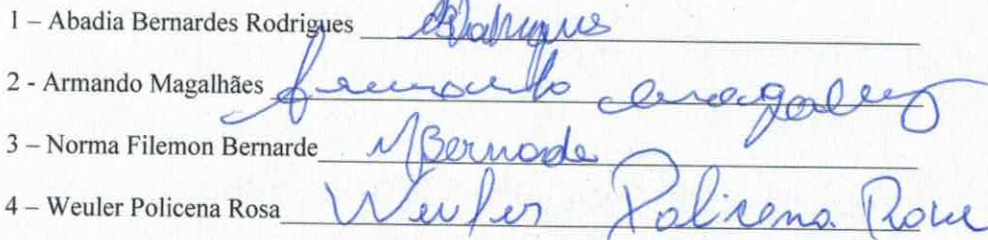 1 – Abadia Bernardes Rodrigues
2 - Armando Magalhães Armando Magalhães
3 – Norma Filemon Bernarde NBernarde
4 – Weuler Policena Rosa Weuler Policena Rosa